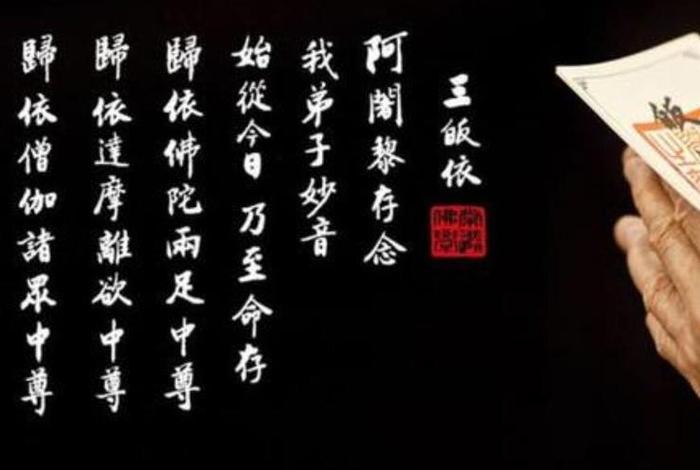 三皈依
阿闍黎存念
我弟子妙音
始從今日乃至命存
歸依佛陀兩足中尊
歸依達摩離欲中尊
歸依僧伽諸眾中尊